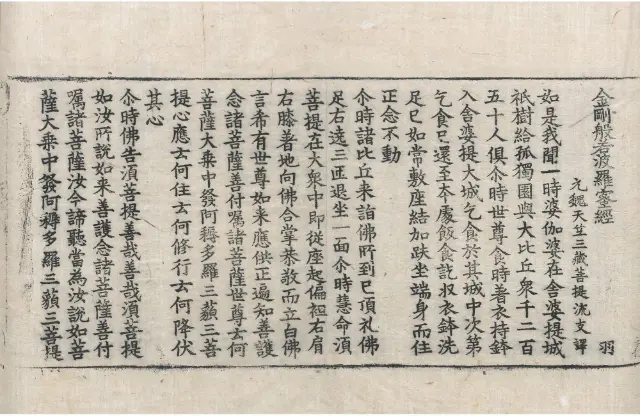 金剛般若波羅蜜經　羽
元魏天竺三藏菩提流支譯
如是我聞一時婆伽婆在舍婆提城
祇樹給孤獨園與大比丘衆千二百
五十人俱尒時世尊食時著衣持鉢
入舍婆提大城乞食於其城中次第
乞食已還至本處飯食訖収衣鉢洗
足已如常敷座結加趺坐端身而住
正念不動
尒時諸比丘来詣佛所到已頂礼佛
足右遶三匝退坐一面尒時慧命湏
菩提在大衆中即從座起偏袒右肩
右膝著地向佛合掌恭敬而立白佛
言希有世尊如来應供正遍知善護
念諸菩薩善付嘱諸菩薩世尊云何
菩薩大乗中發阿耨多羅三藐三菩
提心應云何住云何修行云何降伏
其心
尒時佛告湏菩提善哉善哉湏菩提
如汝所說如来善護念諸菩薩善付
嘱諸菩薩汝今諦聽當為汝說如菩
薩大乗中發阿耨多羅三藐三菩提